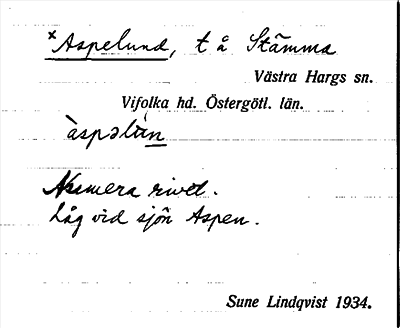 ×Aspelund, t å Stämma
Västra Hargs sn.
Vifolka hd. Östergötl. län.
àspəlùn
Numera rivet.
Låg vid sjön Aspen.
Sune Lindqvist 1934.